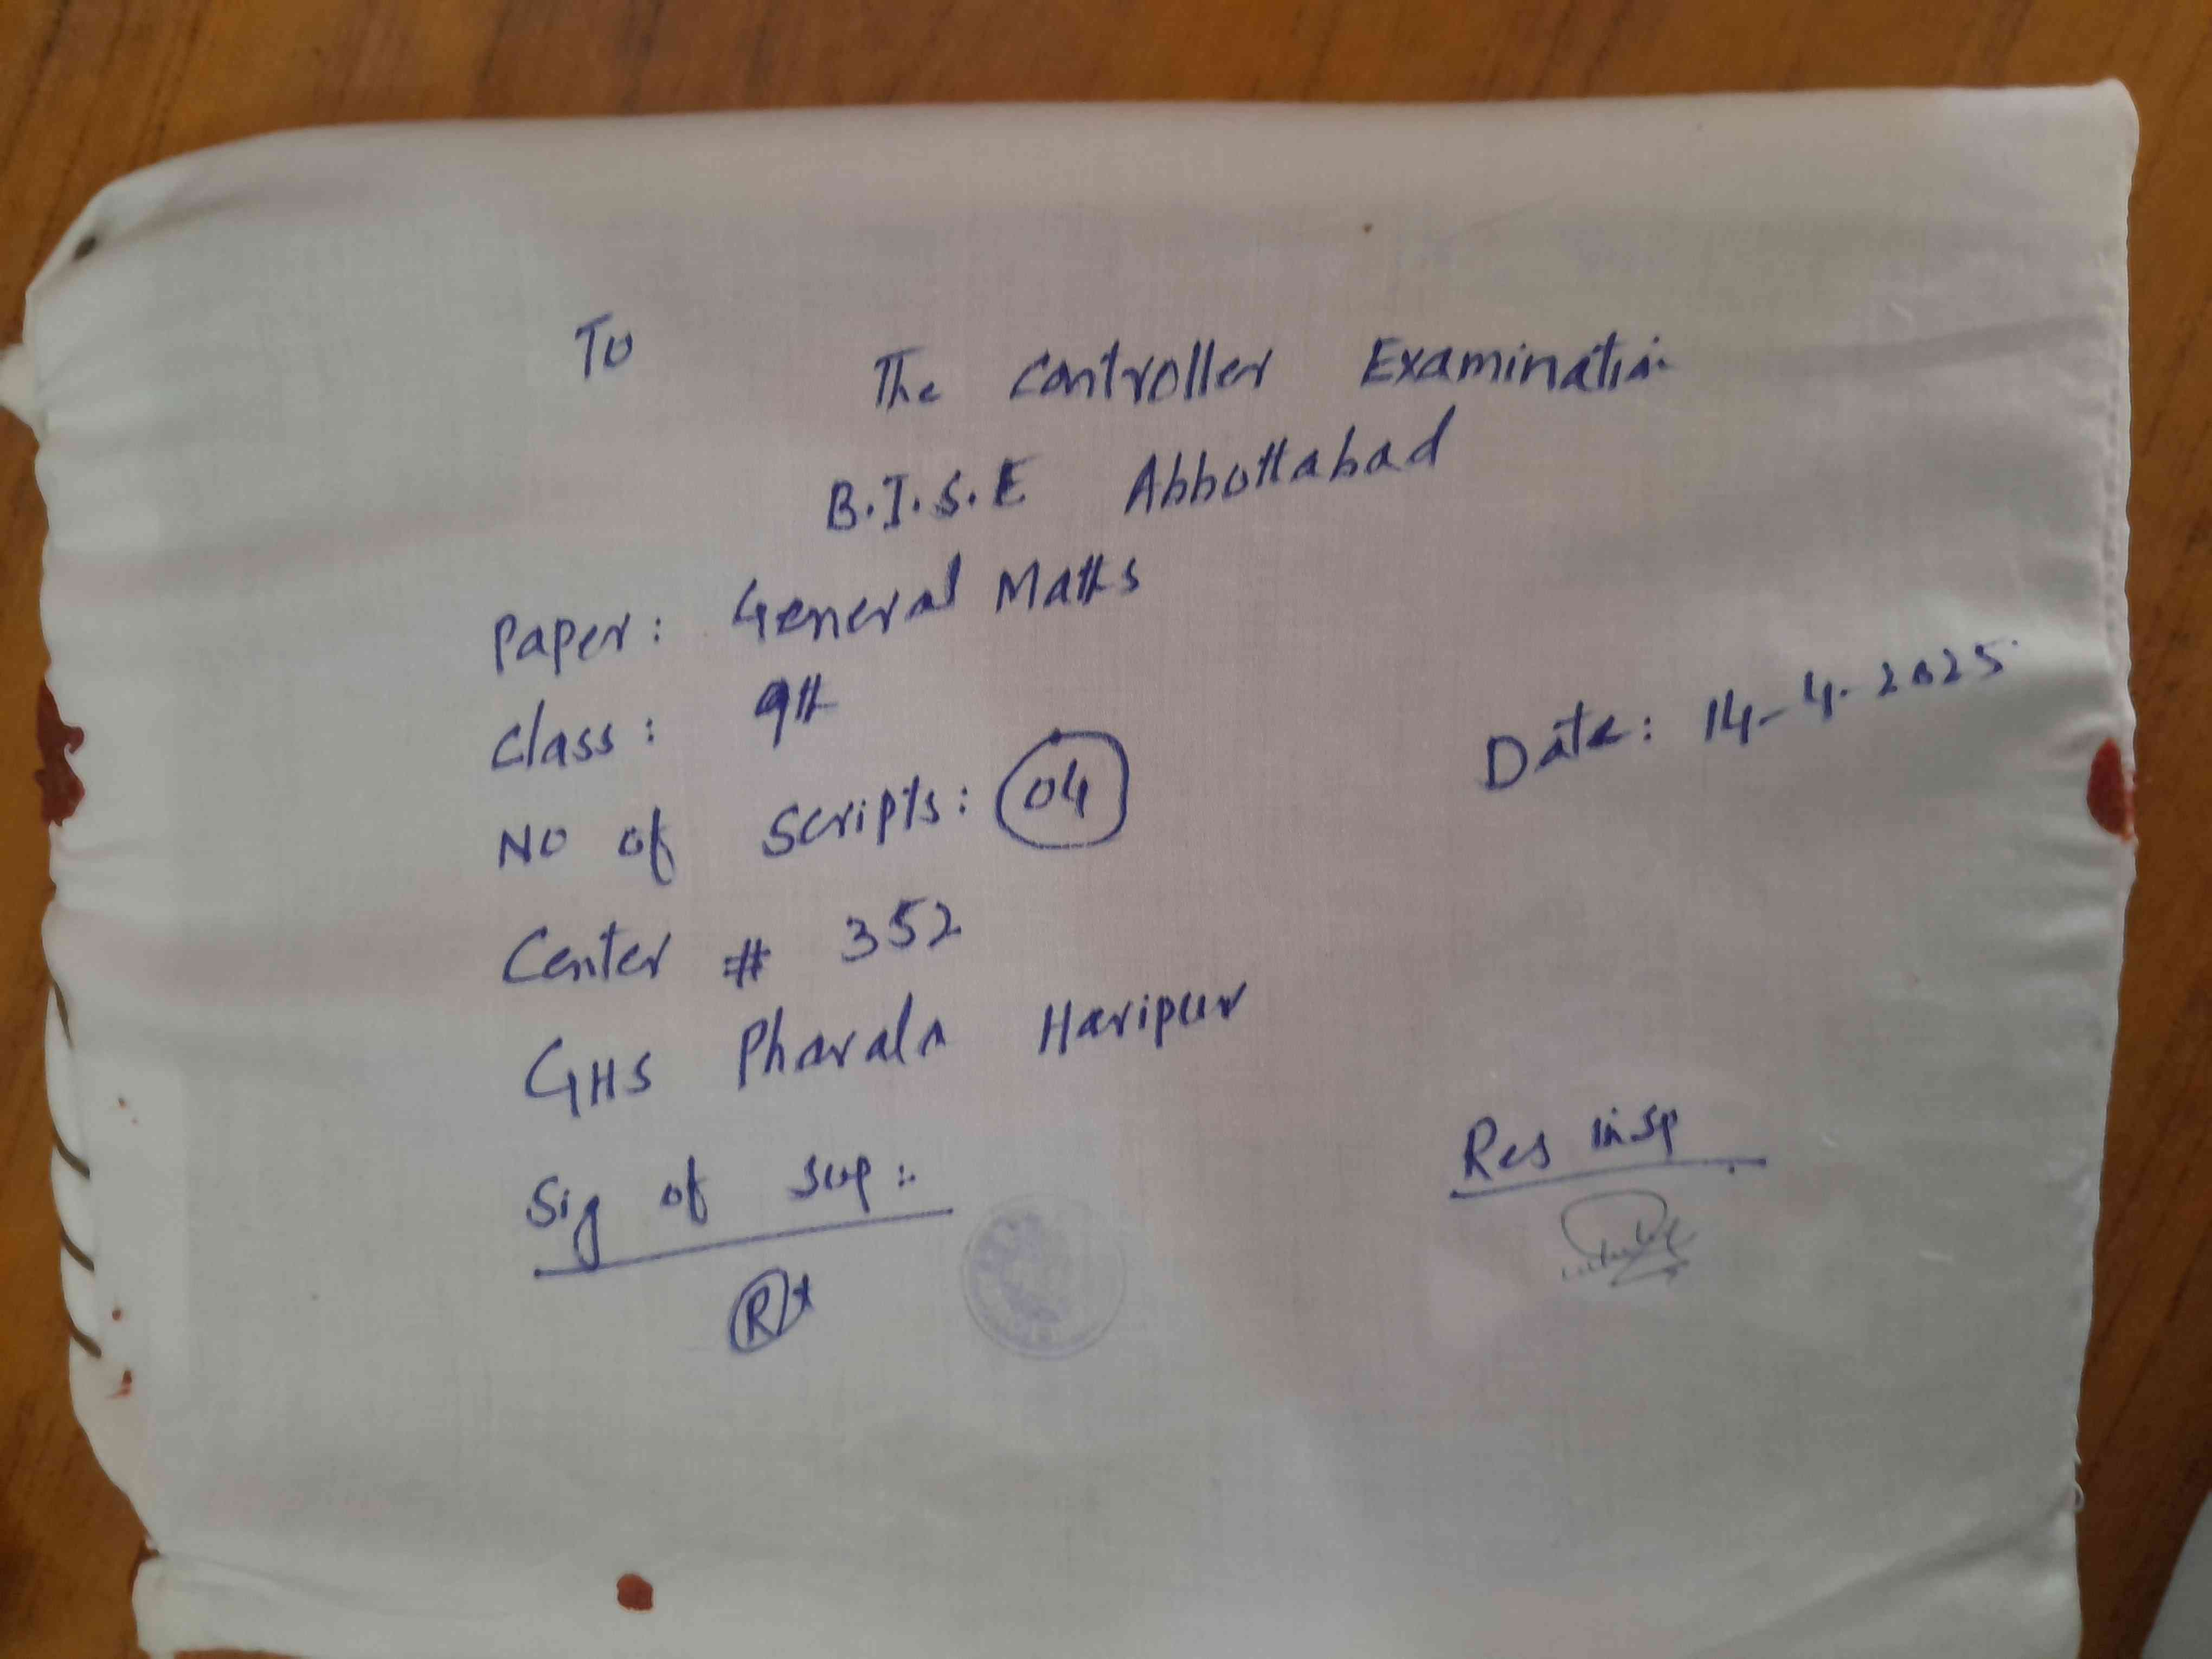 To
The Controller Examination
B.I.S.E Abbottabad
Paper: General Maths
Class: 9th
Date: 14-4-2025
No of Scripts: 04
Center # 352
GHS Pharala Haripur
Sig of Sup:
Res insp
R